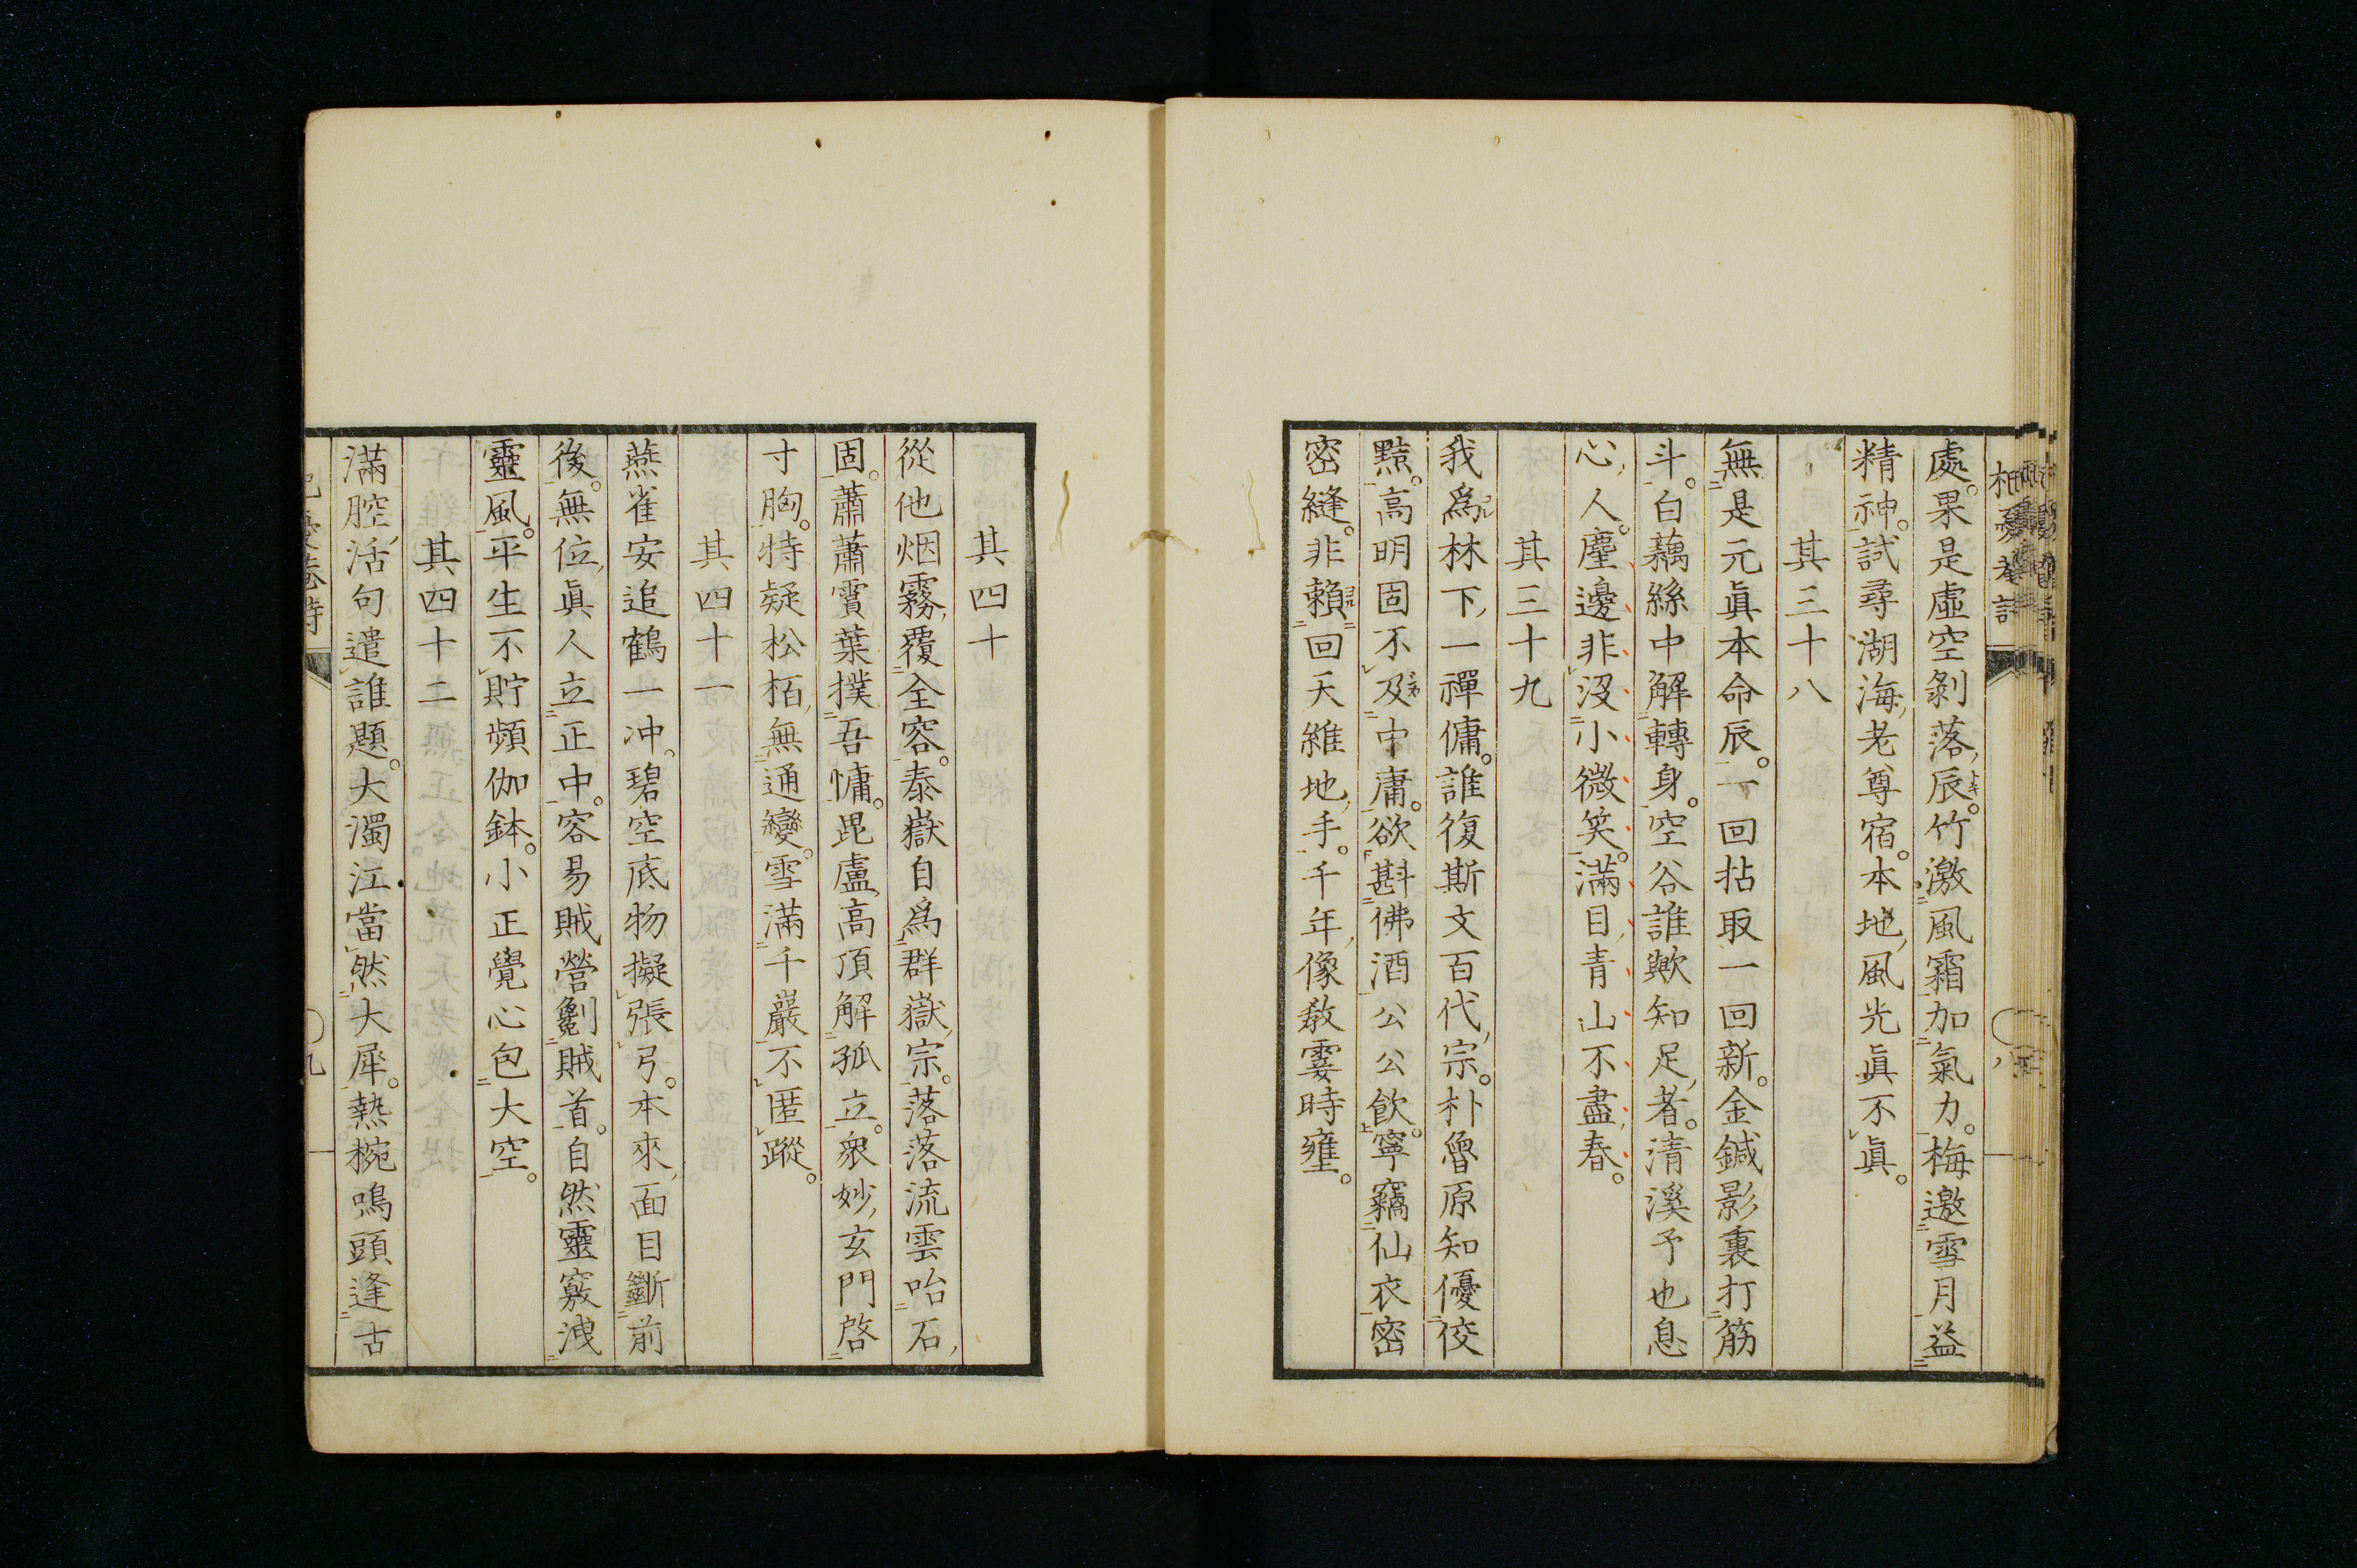 處。果是虛空剝落辰。竹激風霜加氣力。梅邀雪月益
精神。試尋湖海老尊宿。本地風光眞不眞。
其三十八
無是元眞本命辰。一回拈取一回新。金鍼影裏打筋
斗。白藕絲中解轉身。空谷誰歟知足者。清溪予也息
心人。塵邊非沒小微笑。滿目青山不盡春。
其三十九
我爲林下一禪傭。誰復斯文百代宗。朴魯原知優佼
黠。高明固不及中庸。欲斟佛酒公公飮。寧竊仙衣密
密縫。非賴回天維地手。千年像敎霎時壅。
其四十
從他烟霧覆全容。泰嶽自爲群嶽宗。落落流雲咍石
固。蕭蕭霣葉撲吾慵。毘盧高頂解孤立。衆妙玄門啓
寸胸。特疑松栢無通變。雪滿千巖不匿蹤。
其四十一
燕雀安追鶴一冲。碧空底物擬張弓。本來面目斷前
後。無位眞人立正中。容易賊營劖賊首。自然靈竅洩
靈風。平生不貯頻伽鉢。小正覺心包大空。
其四十二
滿腔活句遣誰題。大濁江當然大犀。熱椀鳴頭逢古
九